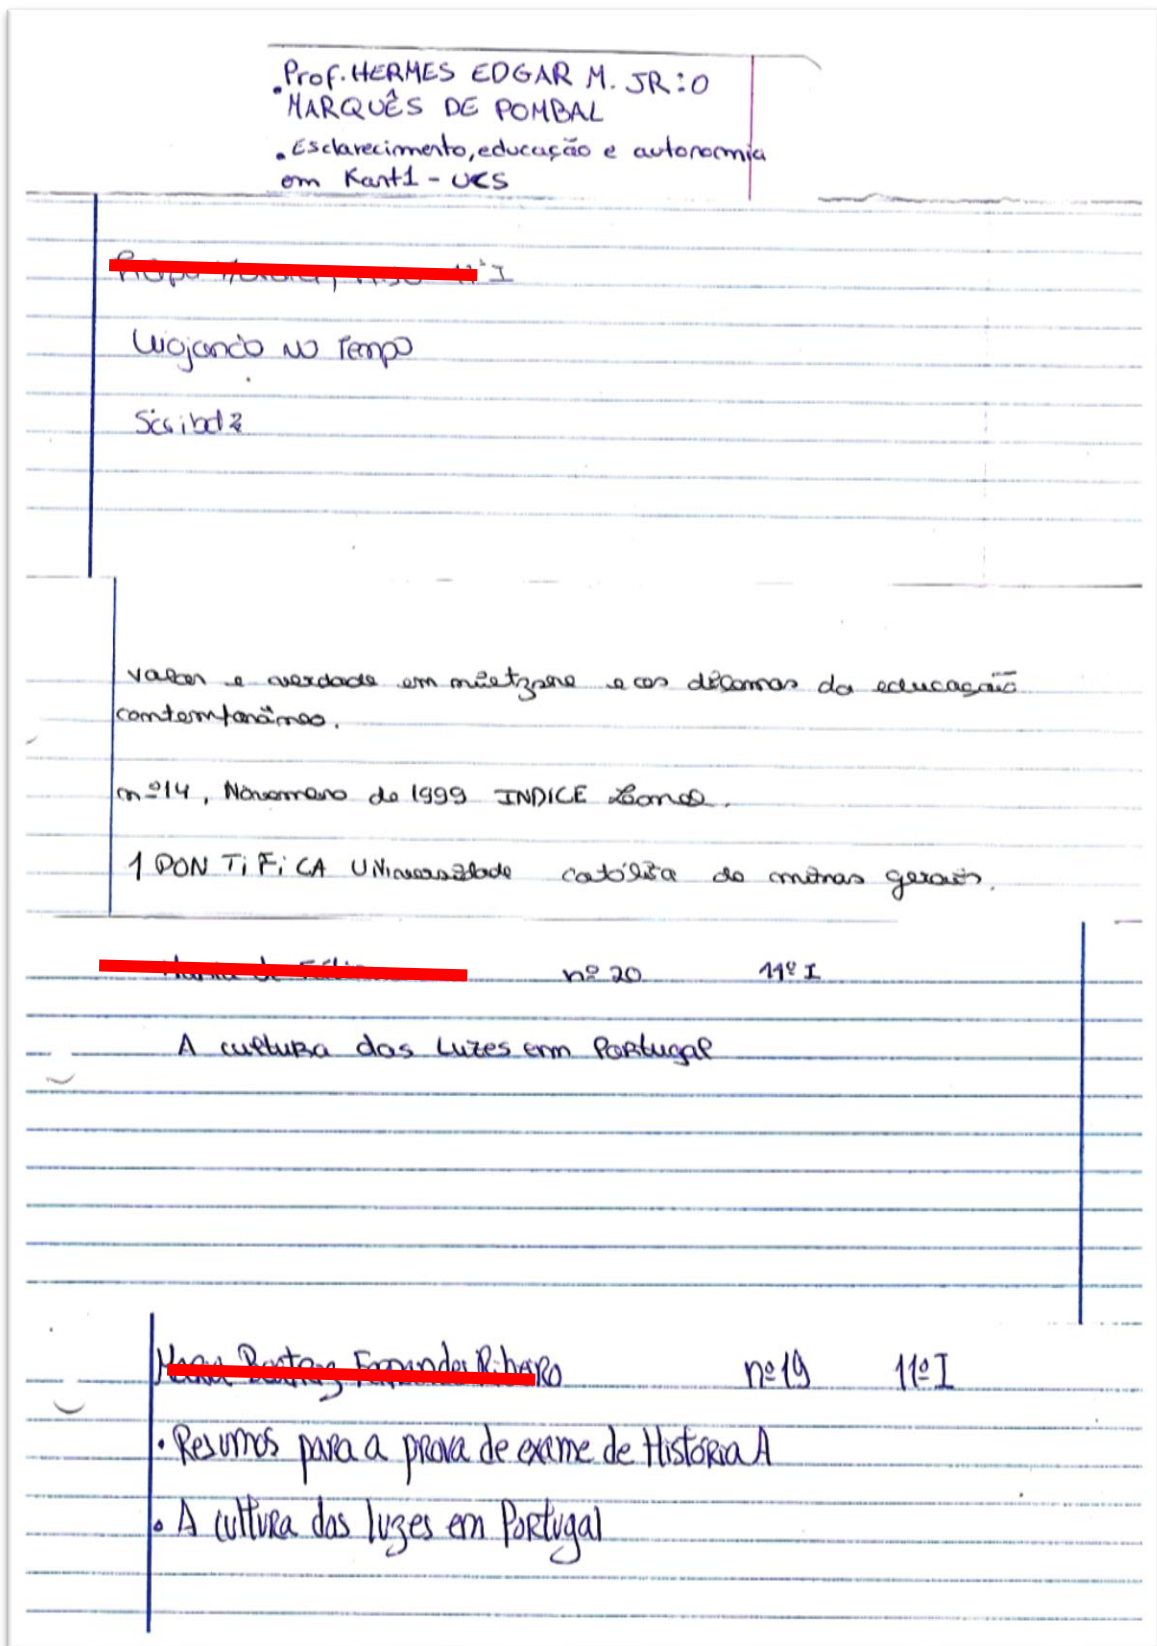 .Prof. HERMES EDGAR M. JR: O
MARQUÊS DE POMBAL
. Esclarecimento, educação e autonomia
em Kant1 - UCS
11º I
Viajando no Tempo
valor e verdade em e os da educação
contemporâneo.
nº 14, de 1999 INDICE
1 PONTIFICA católica de minas gerais.
nº 20 11º I
A cultura das Luzes em Portugal
nº 19 11º I
• Resumos para a prova de exame de História A
• A cultura das luzes em Portugal